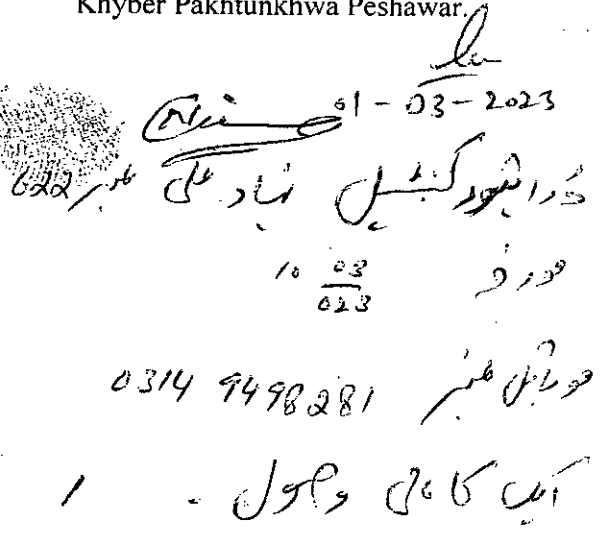 Khyber Pakhtunkhwa Peshawar.
01-03-2023
ڈرائیور کنسٹیبل نہاد علی نمبر 622
مورخہ 10 03 023
موبائل نمبر 0314 9498281
ایک کاپی وصول - 1